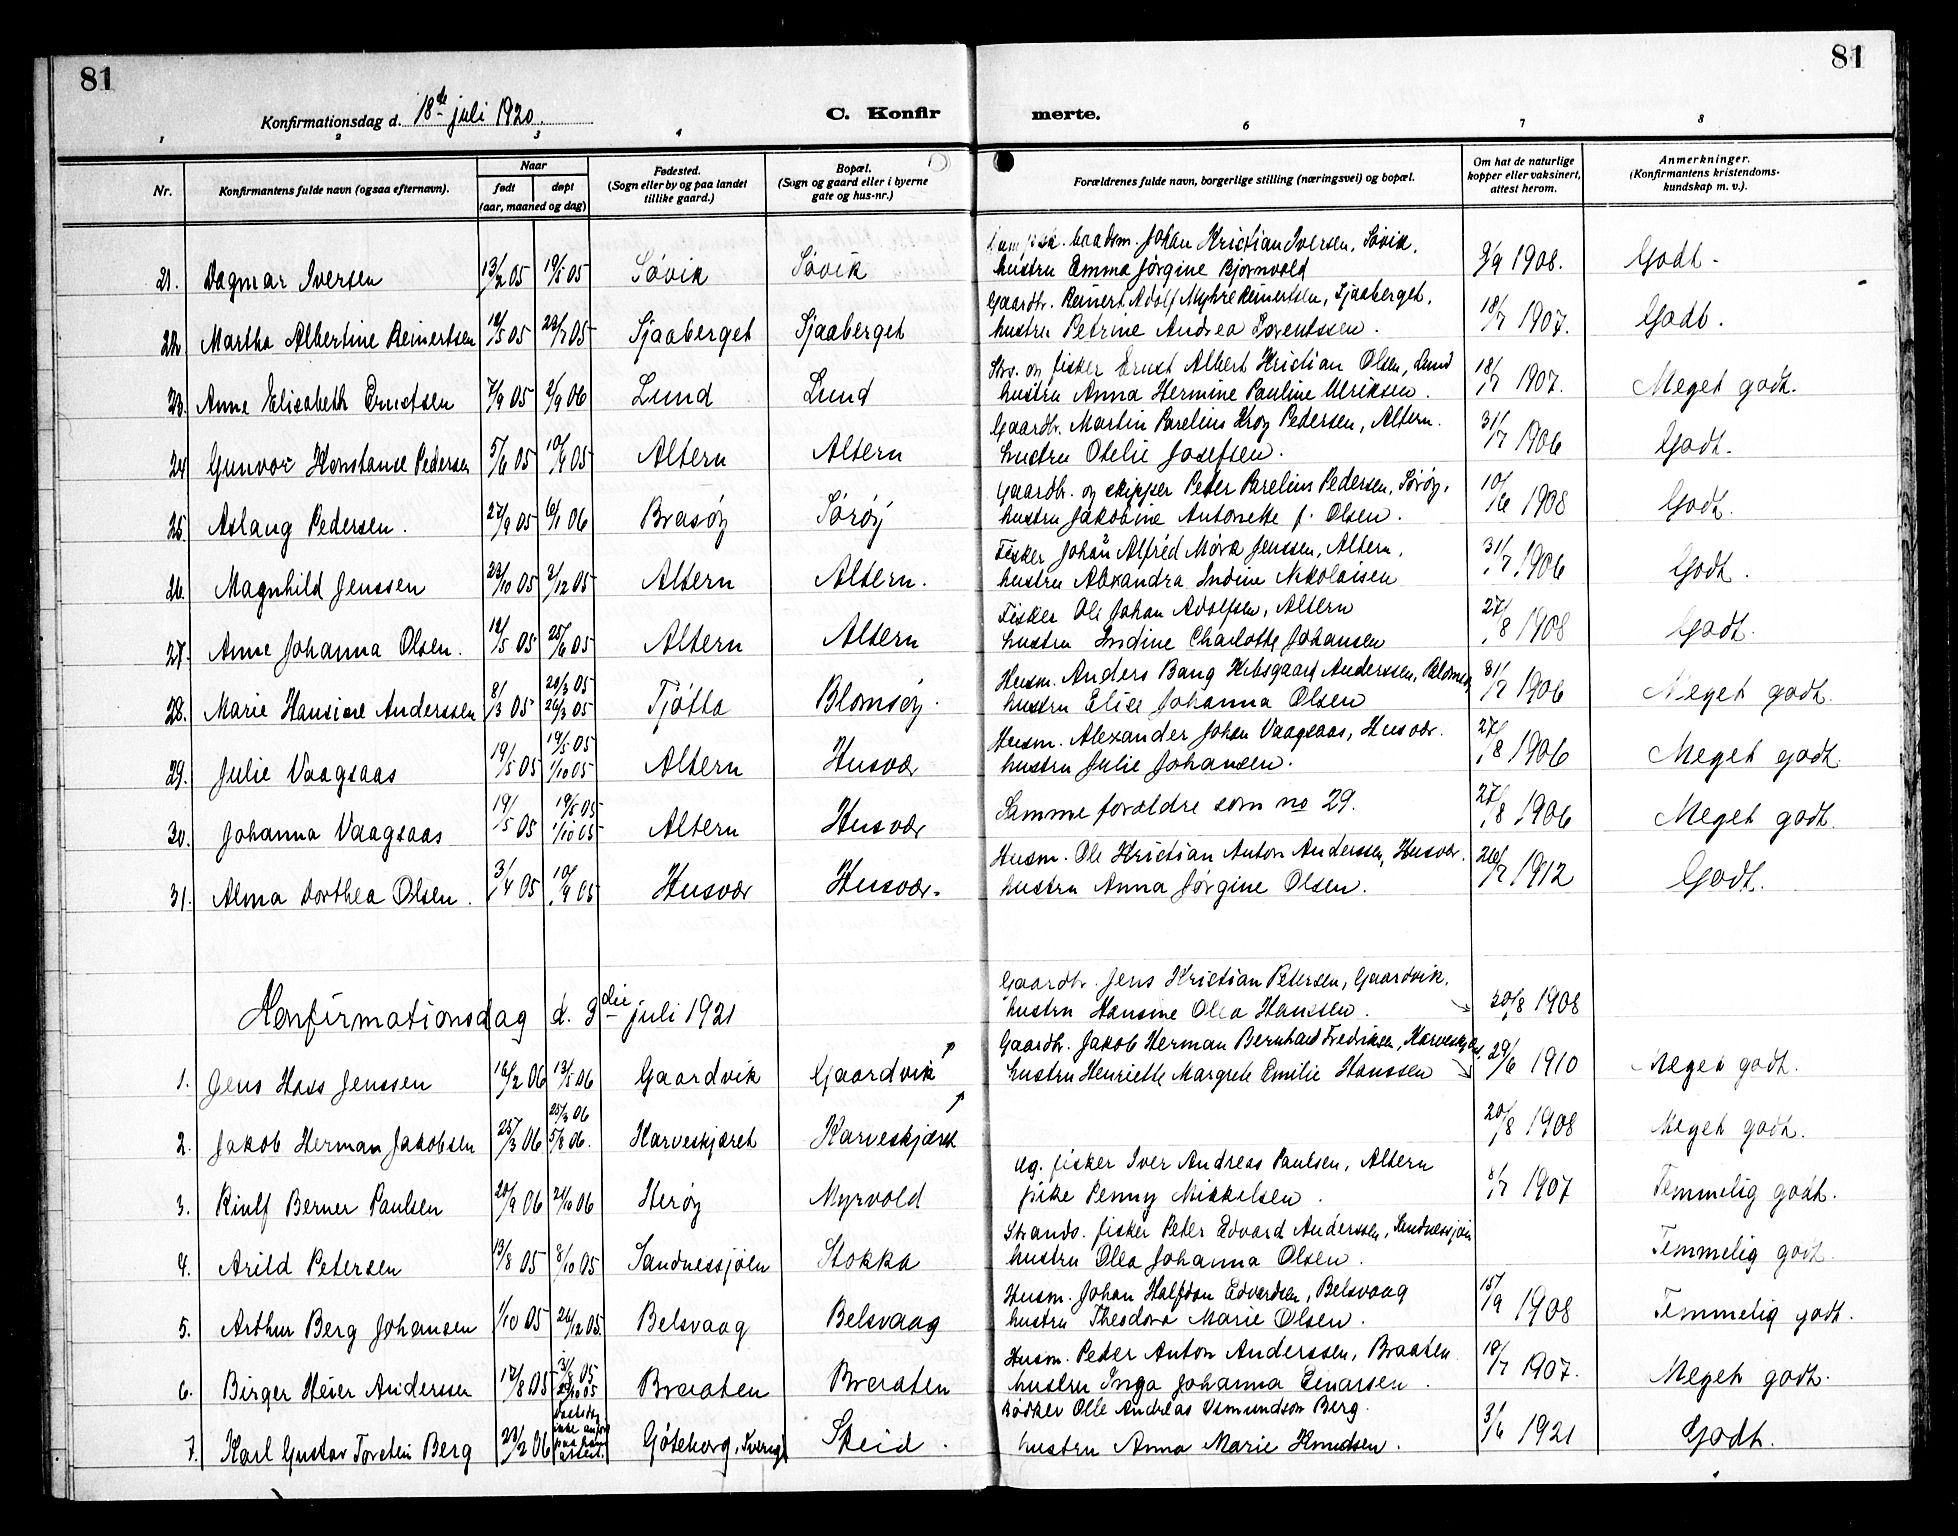 81
81
Konfirmationsdag d. 18de juli 1920.
C. Konfir
merte.
1 2 3 4 6 7 8
Nr.
Konfirmantens fulde navn (ogsaa efternavn).
Naar
født
døpt
(aar, maaned og dag)
Fødested.
(Sogn eller by og paa landet
tillike gaard.)
Bopæl.
(Sogn og gaard eller i byerne
gate og hus-nr.)
Forældrenes fulde navn, borgerlige stilling (næringsvei) og bopæl.
Om hat de naturlige
kopper eller vaksinert,
attest herom.
Anmerkninger.
(Konfirmantens kristendoms-
kundskap m. v.).
Johan Kristian Iversen, Søvik.
21. Dagmar Iversen 13/2 05 19/5 05 Søvik Søvik hustru Emma Jørgine Bjørnvold 9/9 1908. Godt.
Gaardbr. Reinert Adolf Myhre Reinertsen, Sjaaberget.
22. Martha Albertine Reinertsen Sjaaberget Sjaaberget hustru Petrine Andrea Lorentssen. 18/7 1907. Godt.
Strs. og fisker Ernst Albert Kristian Olsen, Lund
23. Anne Elisabeth Ernstsen 7/9 05 Lund Lund hustru Anna Hermine Pauline Ulriksen. 18/7 1907. Meget godt.
Gaardbr. Martin Parelius Krog Pedersen, Altern.
24 Gunvor Konstanse Pedersen 5/6 05 Altern Altern hustru Otelie Josefsen. 31/7 1906 Godt.
Gaardbr. og skipper Peter Parelius Pedersen, Sørøy.
25. Aslaug Pedersen. 27/9 05 6/1 06 Brasøy Sørøy hustru Jakobine Antonette f. Olsen. 10/6 1908 Godt.
Fisker Johan Alfred Mørk Jenssen, Altern.
26. Magnhild Jenssen Altern Altern. hustru Alexandra Indine Nikolaisen 31/7 1906 Godt.
Fisker Ole Johan Adolfsen, Altern
27. Anne Johanna Olsen. 25/6 05 Altern Altern hustru Indine Charlotte Johansen 27/8 1908 Godt.
Husm. Anders Bang Hibsgaard Anderssen, Blomsøy
28. Marie Hansine Anderssen 8/3 05 26/3 05 Tjøtta Blomsøy. hustru Elise Johanna Olsen 31/7 1906 Meget godt.
Husm. Alexander Johan Vaagsaas, Husvær.
29. Julie Vaagsaas 19/5 05 1/10 05 Altern Husvær hustru Julie Johansen. 27/8 1906 Meget godt.
30. Johanna Vaagsaas 19/5 05 1/10 05 Altern Husvær Samme forældre som no 29. 27/8 1906 Meget godt.
Husm. Ole Kristian Anton Anderssen, Husvær.
31. Alma Dorthea Olsen. 3/4 05 Husvær Husvær. hustru Anna Jørgine Olsen. 26/7 1912 Godt.
Gaardbr. Jens Kristian Petersen, Gaardvik.
Konfirmationsdag d. 3die juli 1921 hustru Hansine Olea Hanssen. 20/8 1908
Gaardbr. Jakob Herman Bernhard Fredriksen, Karveskjæret.
1. Jens Hass Jenssen 13/5 06 Gaardvik Gaardvik hustru Henriette Margrete Emilie Hanssen 29/6 1910 Meget godt.
2. Jakob Herman Jakobsen 25/3 06 5/8 06. Karveskjæret Karveskjæret 20/8 1908 Meget godt.
Ug. fisker Iver Andreas Paulsen, Altern
3. Rinlf Berner Paulsen 20/9 06 21/10 06 Herøy Myrvold pike Penny Mikkelsen. 1907 Temmelig godt.
Strands. fisker Peter Edvard Anderssen, Sandnessjøen
4. Arild Petersen 13/8 05 8/10 05 Sandnessjøen Stokka hustru Olea Johanna Olsen. Temmelig godt.
Husm. Johan Halfdan Edvardsen, Belsvaag
5. Arthur Berg Johansen 1/10 05 26/12 05. Belsvaag Belsvaag hustru Theodora Marie Olsen. 15/9 1908 Temmelig godt.
Husm. Peder Anton Anderssen, Braaten
6. Birger Heier Anderssen 12/8 05 Braaten Braaten hustru Inga Johanna Einarsen. 18/7 1907. Meget godt.
Bødker Olle Andreas Osmundson Berg.
7. Karl Gustav Torstein Berg 23/2 06 Göteborg, Sverige Skeid. hustru Anna Marie Knudsen. 3/6 1921 Godt.